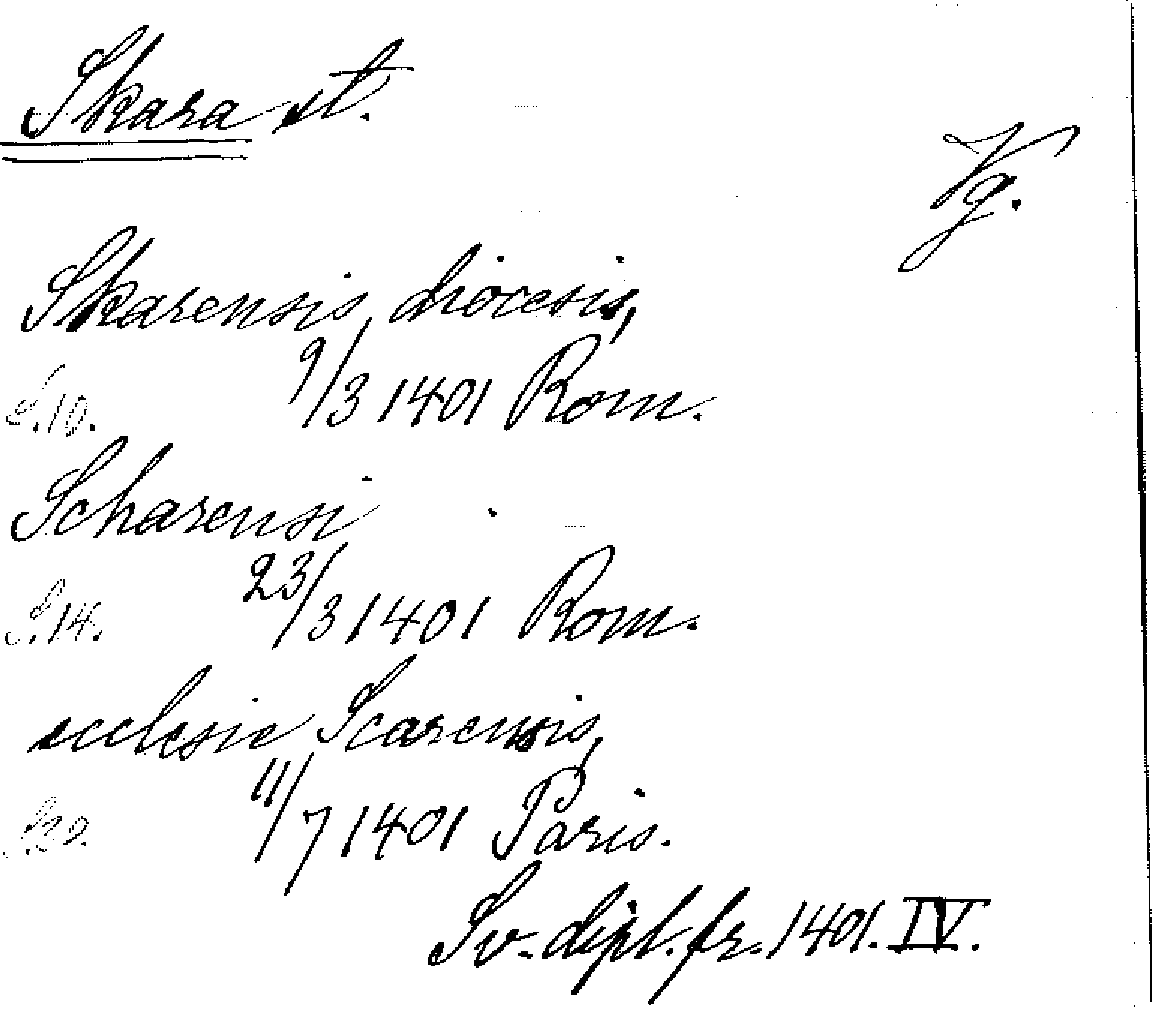 Skara st.
Vg.
Skarensis diocesis,
S.10. 9/3 1401 Rom.
Scharensi
S.14. 23/3 1401 Rom.
ecclesie Scarensis,
11/7 1401 Paris.
Sv. dipl. fr. 1401. IV.